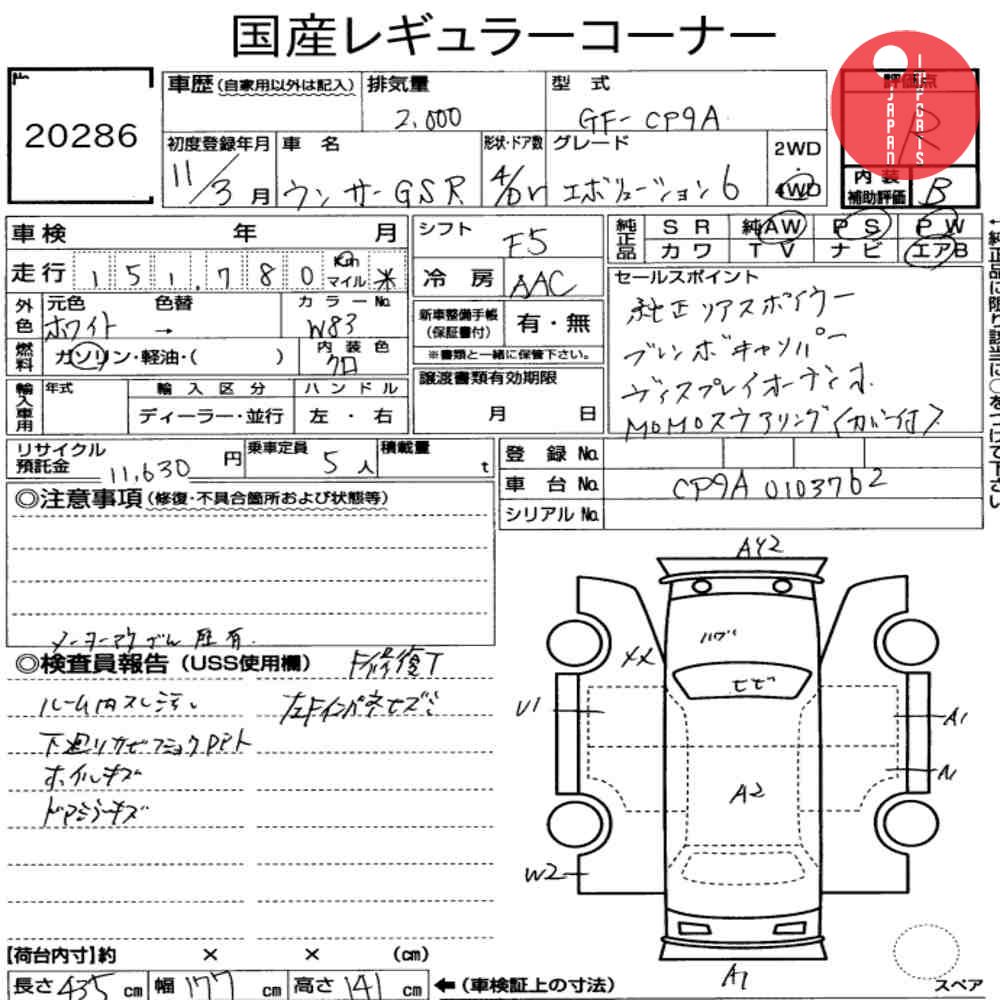 国産レギュラーコーナー
No.
20286
車歴 (自家用以外は記入)
排気量
2,000
型 式
GF-CP9A
評価点
R
JAPAN
IMPORTS
初度登録年月
11/3月
車 名
ランサーGSR
形状・ドア数
4/Dr
グレード
エボリューション6
2WD
4WD
内装
補助評価
B
車検 年 月
シフト
F5
純正品
SR 純AW PS PW
カワ TV ナビ エアB
走行 151,780 Km マイル 米
冷 房
AAC
セールスポイント
純正リアスポイラー
ブレンボキャリパー
ディスプレイオーディオ
MOMOステアリング(カバー付)
外色
元色 色替 カラーNo.
ホワイト → W83
新車整備手帳
(保証書付)
有・無
※書類と一緒に保管下さい。
燃料
ガソリン・軽油・( )
内装色
クロ
輸入車用
年式
輸入区分
ハンドル
ディーラー・並行
左・右
譲渡書類有効期限
月 日
リサイクル
預託金
11,630 円
乗車定員
5 人
積載量
t
登 録 No.
車 台 No.
CP9A 0103762
シリアル No.
◎注意事項 (修復・不具合箇所および状態等)
メーターマイグル歴有.
◎検査員報告 (USS使用欄)
ルーム内スレ
下廻りサビ
ホイルキズ
ドアミラーキズ
左Fインパネキズ
AY2
ハゲ
XX
トビ
U1
A1
A2
W2
A1
【荷台内寸】約 × × (cm)
長さ 435 cm 幅 177 cm 高さ 141 cm
←(車検証上の寸法)
スペア
←純正品に限り該当に○をつけて下さい